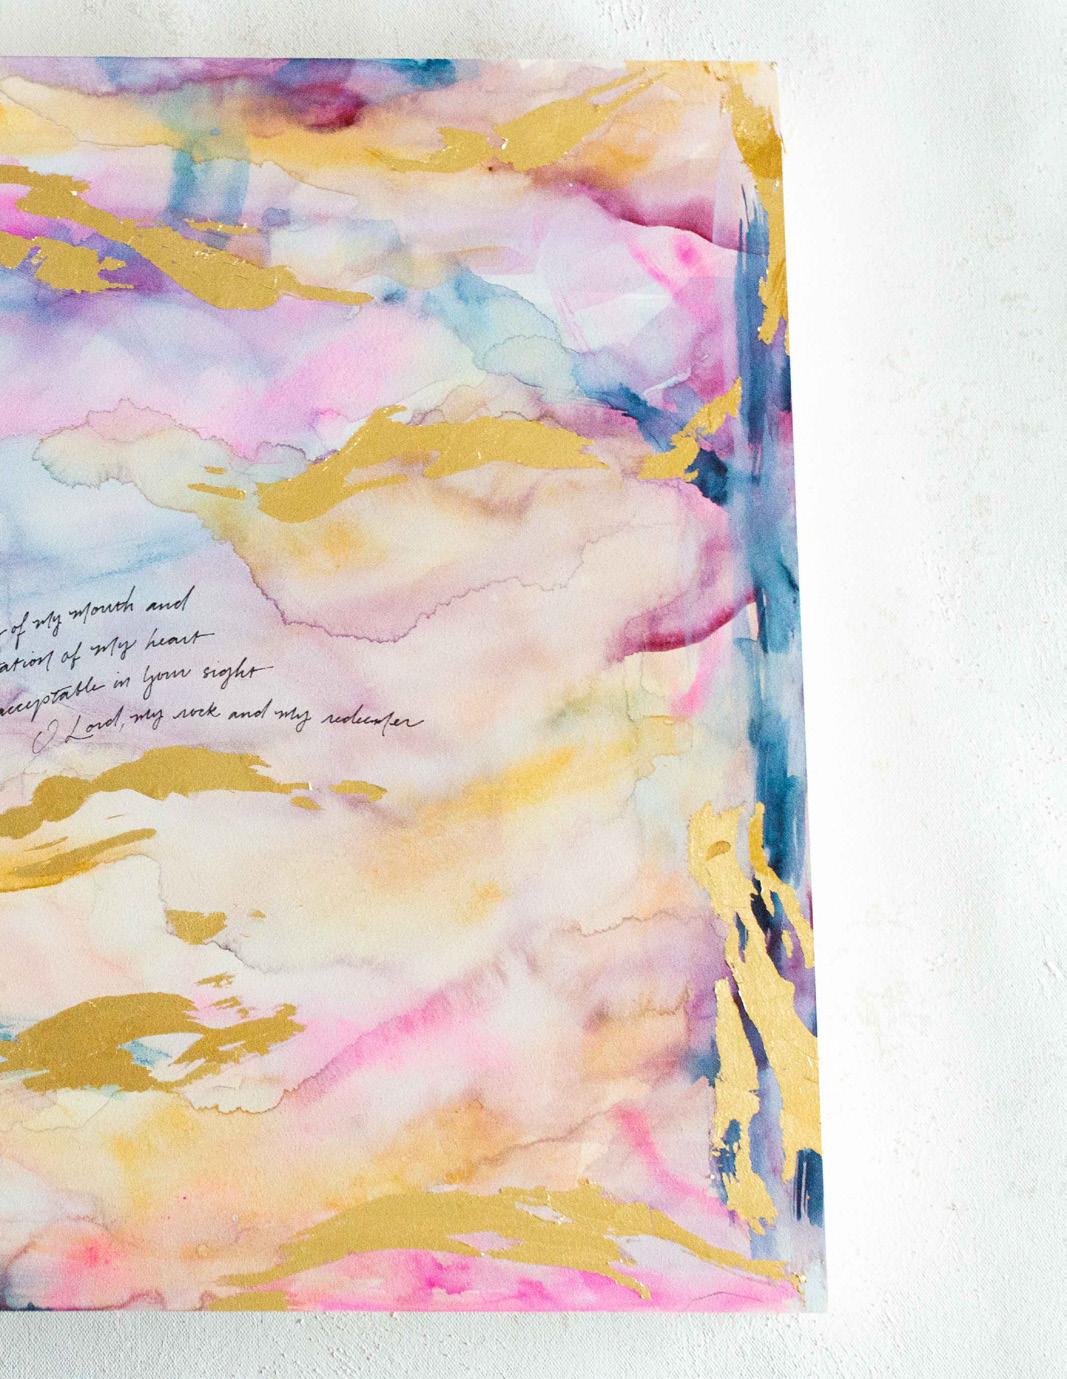 of my mouth and
ation of my heart
acceptable in your sight
O Lord, my rock and my redeemer